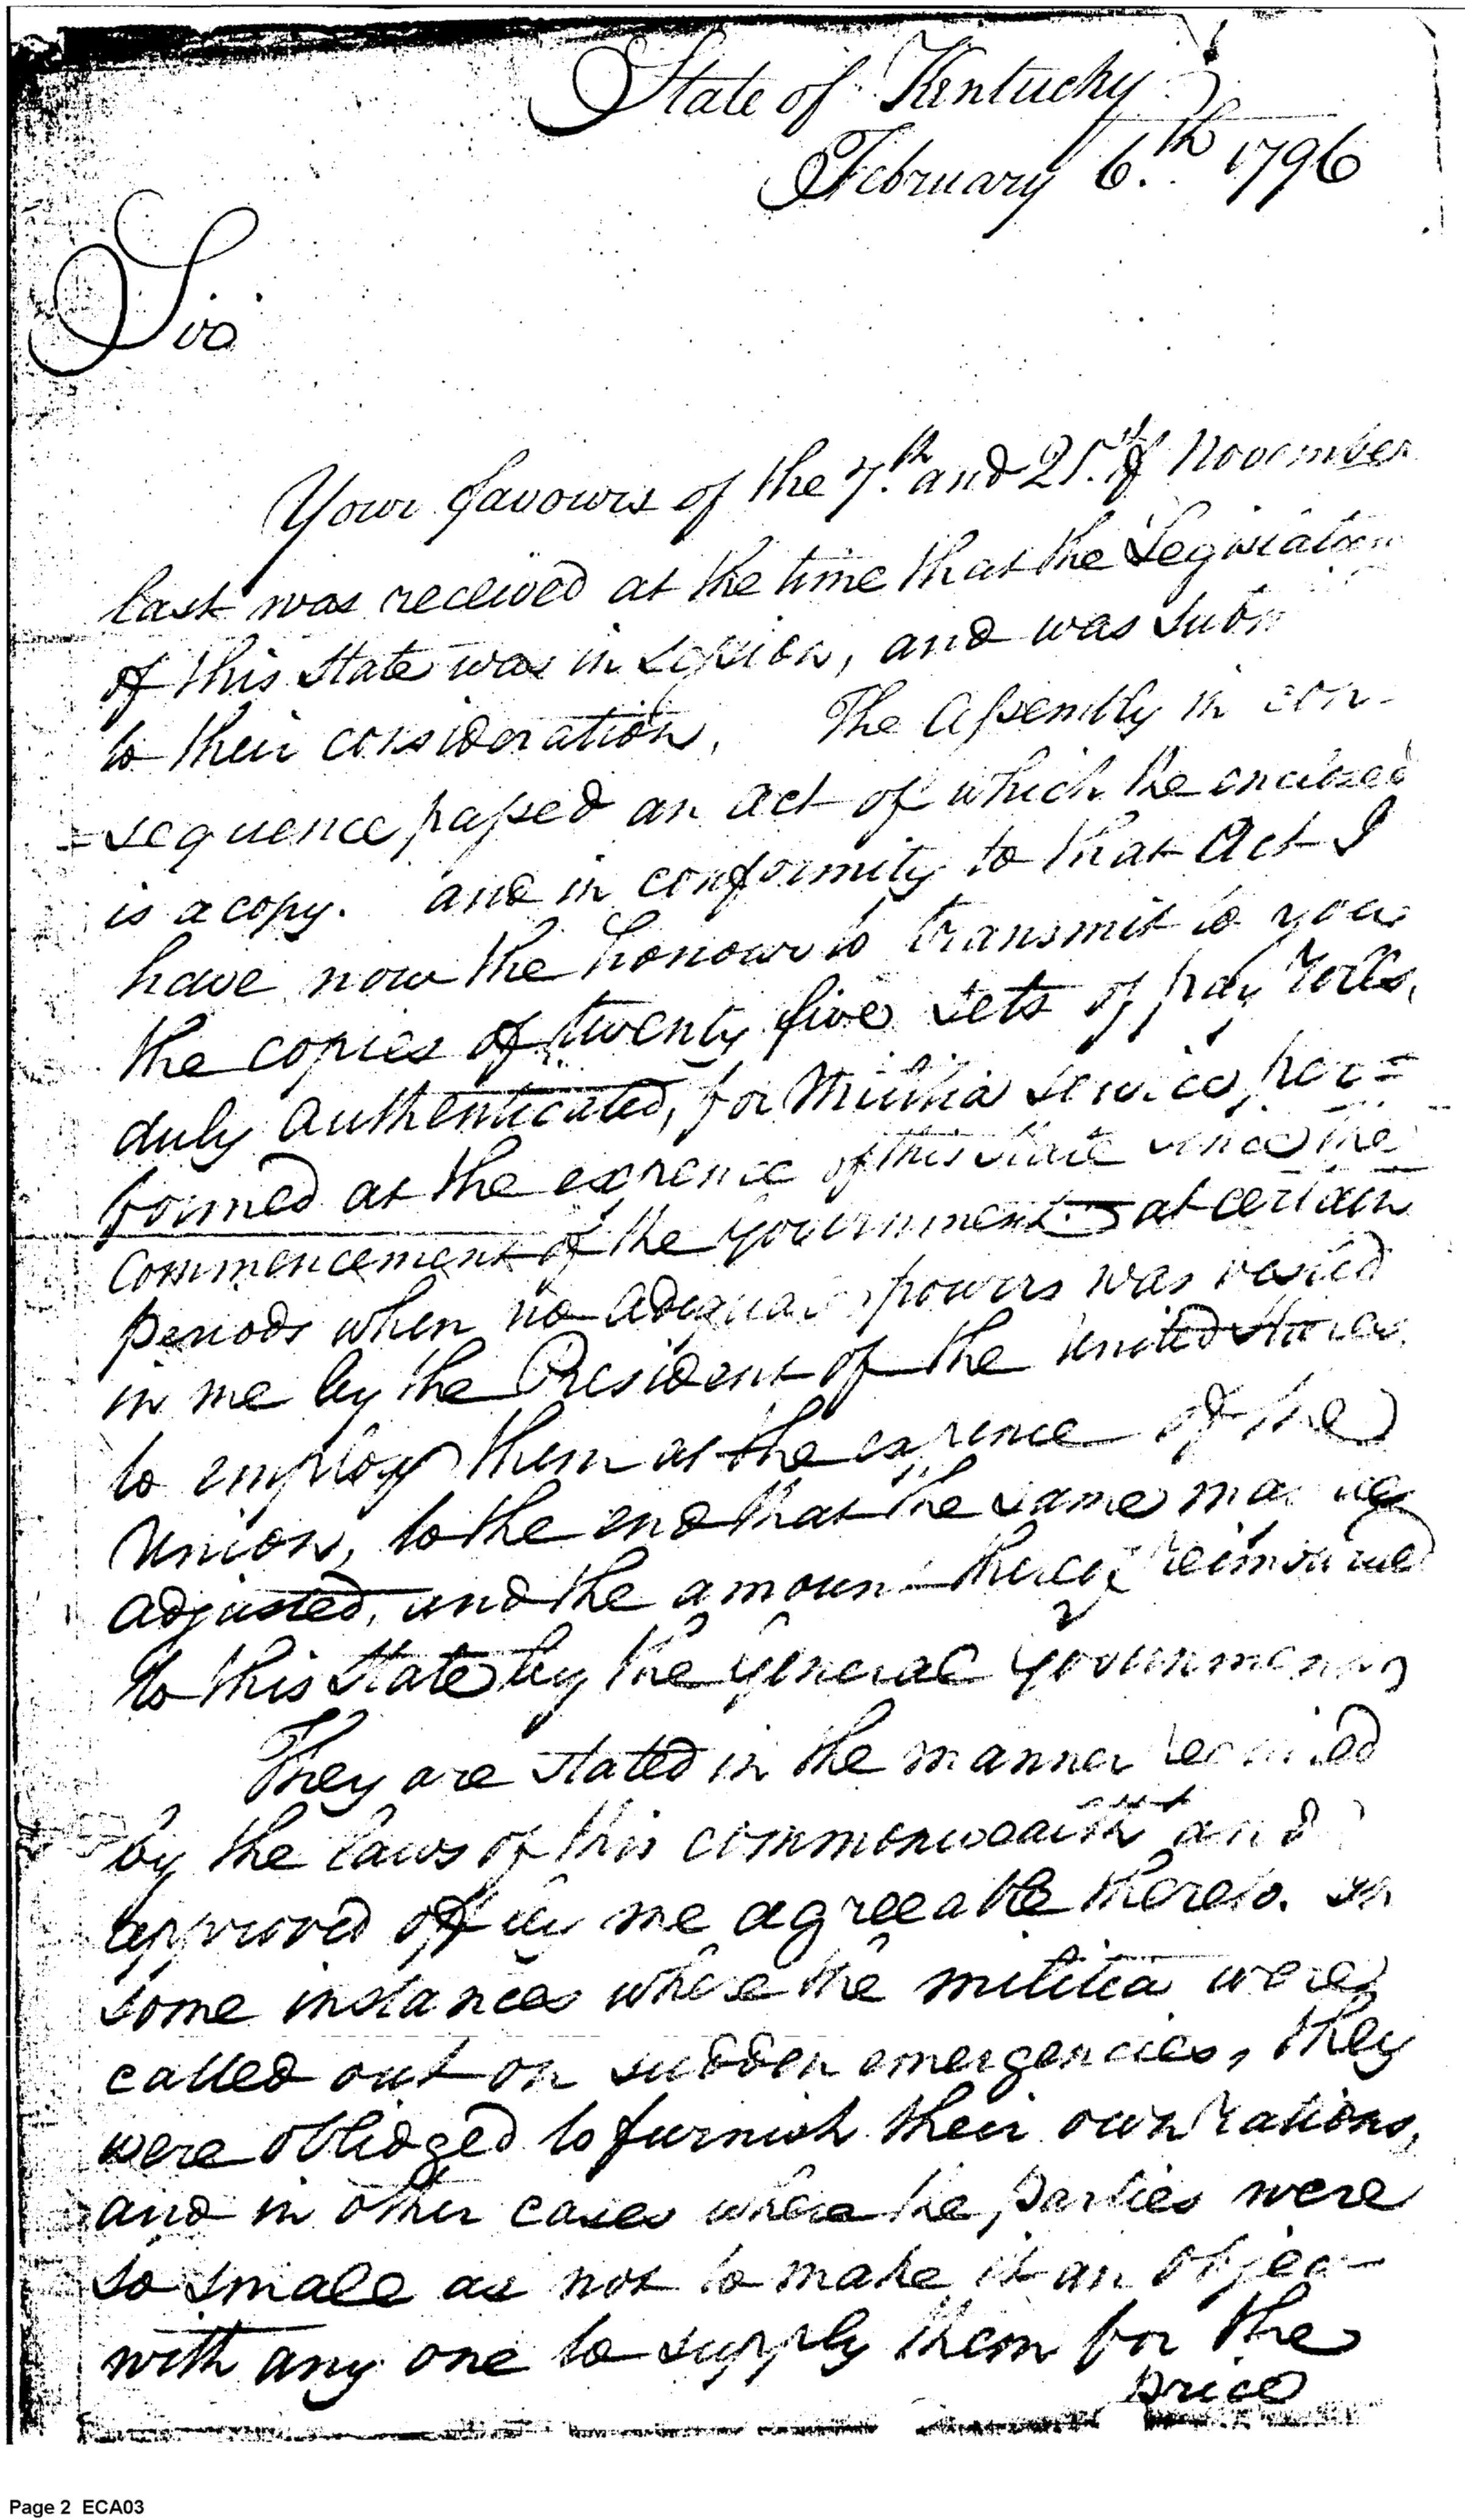 State of Kentucky
February 6.th 1796
Sir
Your favours of the 7.th and 21.st of November
last was received at the time that the Legislature
of this State was in session, and was
to their consideration. The Assembly in con-
=sequence passed an act of which the enclosed
is a copy. and in conformity to that Act I
have now the honour to transmit to you
the copies of twenty five sets of pay rolls,
duly authenticated, for Militia service, per=
formed at the expence of this State since the
commencement of the government at certain
periods when no adequate powers was vested
in me by the President of the United States
to employ them at the expence of the
Union, to the end that the same may be
adjusted, and the amount thereof reimbursed
to this State by the General Government,
They are stated in the manner required
by the laws of this commonwealth and
approved off by me agreeable thereto. In
some instances where the militia were
called out on sudden emergencies, they
were oblidged to furnish their own rations,
and in other cases where the parties were
so small as not to make it an object
with any one to supply them for the
price
Page 2 ECA03